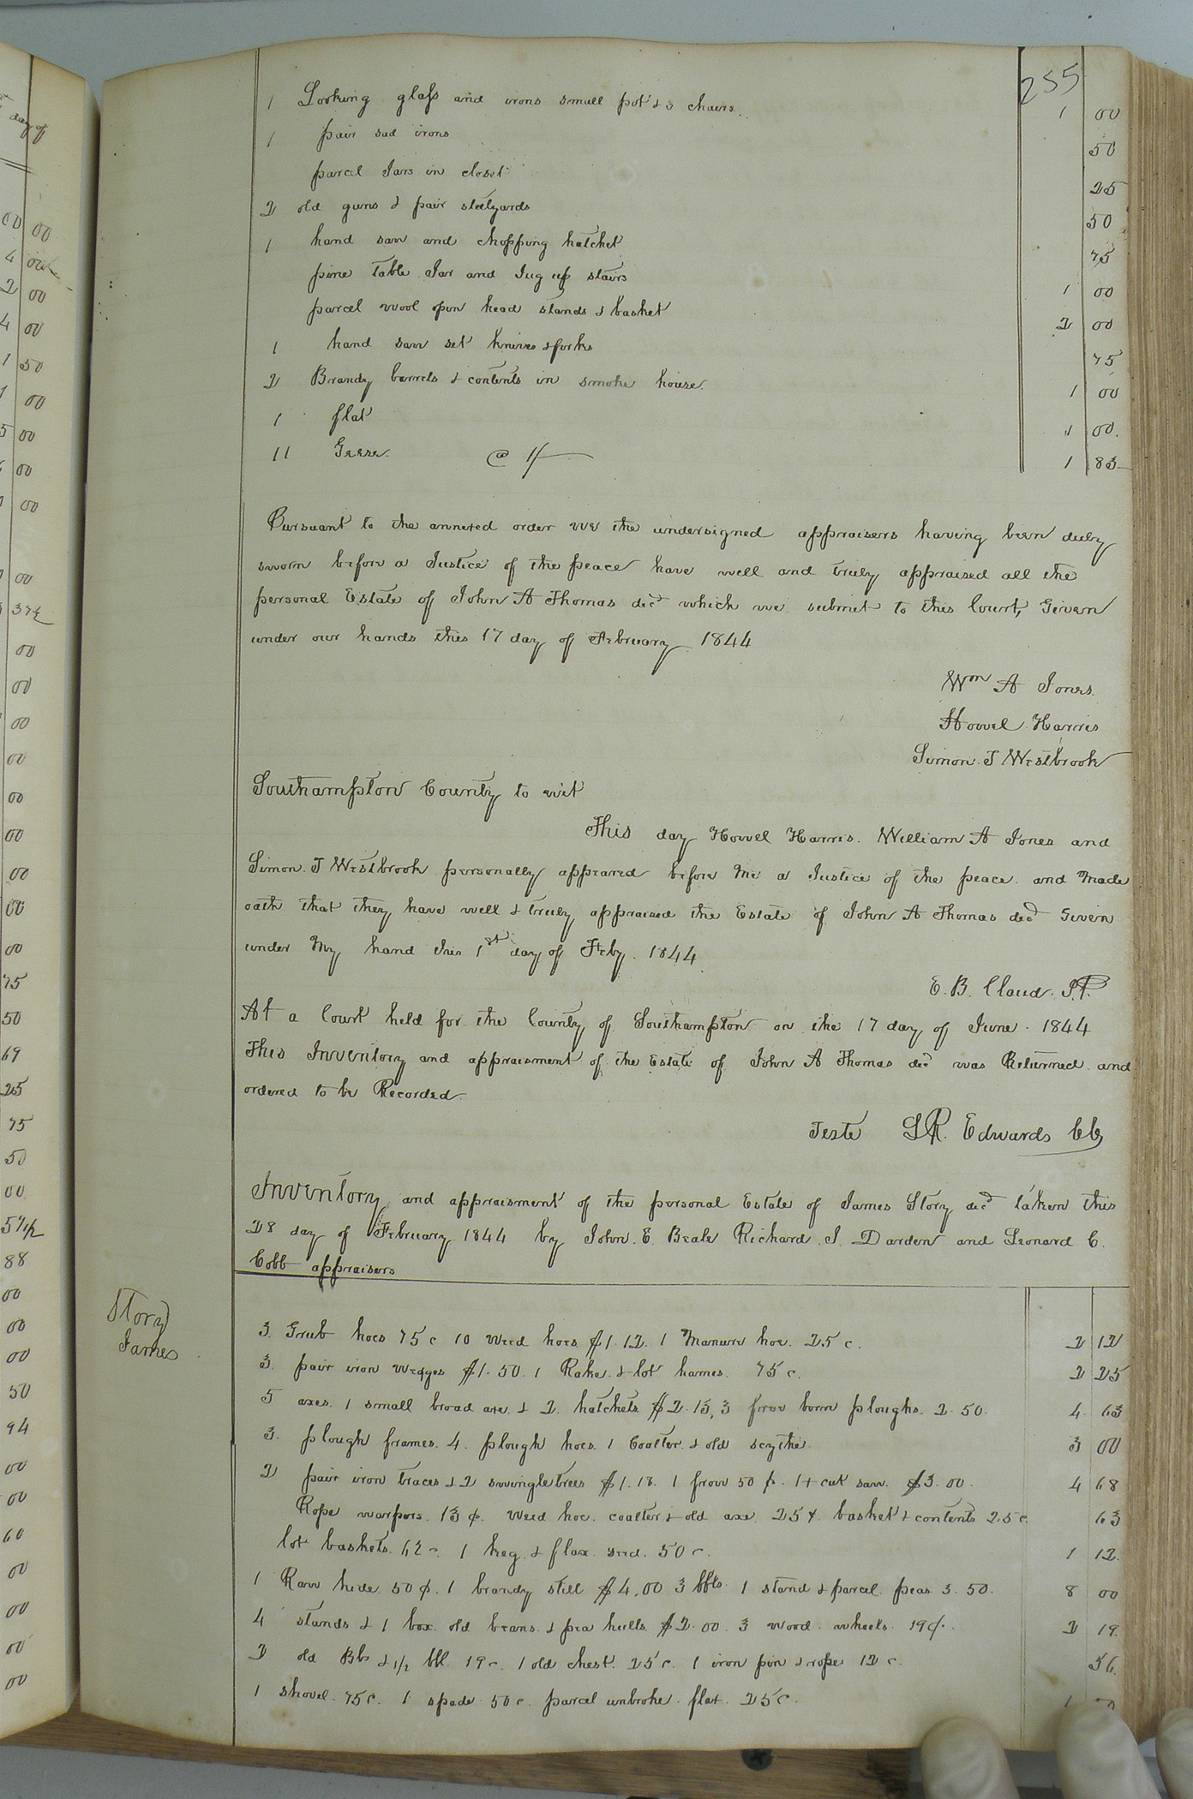 255
1 Looking glass and irons small pot & 3 chairs. 1 00
1 pair sad irons 50
parcel Jars in closet 25
2 old guns & pair steelyards 50
1 hand saw and chopping hatchet 75
pine table Jar and Jug up stairs 1 00
parcel wool spun head stands & basket 2 00
1 hand saw set knives & forks 75
2 Brandy barrels & contents in smoke house. 1 00
1 flat 1 00.
11 Geese. @ 1/ 1 83
Pursuant to the annexed order we the undersigned appraisers having been duly
sworn before a Justice of the peace have well and truly appraised all the
personal Estate of John A Thomas decd which we submit to this Court, Given
under our hands this 17 day of February 1844
Wm A Jones.
Howel Harris
Simon. J Westbrook
Southampton County to wit
This day Howel Harris. William A Jones and
Simon. J Westbrook personally appeared before Me a Justice of the peace. and Made
oath that they have well & truly appraised the Estate of John A Thomas decd Given
under My hand this 1st day of Feby. 1844
E. B. Claud. J.P.
At a Court held for the County of Southampton on the 17 day of June. 1844
This Inventory and appraisment of the Estate of John A Thomas decd was Returned and
ordered to be Recorded
Teste L R. Edwards CC
Inventory and appraisment of the personal Estate of James Story decd taken this
28 day of February 1844 by John. E. Beale Richard. J. Darden and Leonard C.
Cobb appraisers
Story
James
3. Grub hoes 75 c 10 Weed hoes $1.12. 1 Manure hoe. 25 c. 2 12
3. pair iron Wedges $1.50. 1 Rake. & lot hames. 75 c. 2 25
5 axes. 1 small broad axe & 2. hatchets $2.13, 3 ploughs. 2.50. 4 63
3. plough frames. 4. plough hoes. 1 Coalter. & old scythe 3 00
2 pair iron traces & 2 swingletrees $1.18. 1 frow 50 ¢. 1 + cut saw. $3.00. 4 68
Rope warpors. 13 ¢. Weed hoe. coalter & old axe. 25 ¢ basket & contents 25 c 63
lot baskets. 62 c. 1 keg. & flax. seed. 50 c. 1 12.
1 Raw hide 50 ¢. 1 brandy still $4,00 3 bbls. 1 stand & parcel. peas 3.50. 8 00
4 stands & 1 box. old beans. & pea hulls. $2.00. 3 wood. wheels. 19 ¢. 2 19.
2 old Bbs & 1/2 bbl. 19 c. 1 old chest. 25 c. 1 iron pin & rope 12 c. 56.
1 shovel. 75 c. 1 spade 50 c. parcel unbroke. flax. 25 c. 1 50